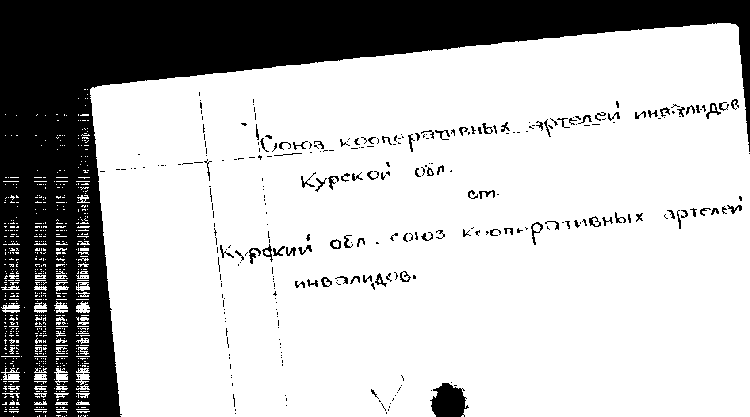 Союз кооперативных артелей инвалидов
Курской обл.
ст.
Курский обл. союз кооперативных артелей
инвалидов.